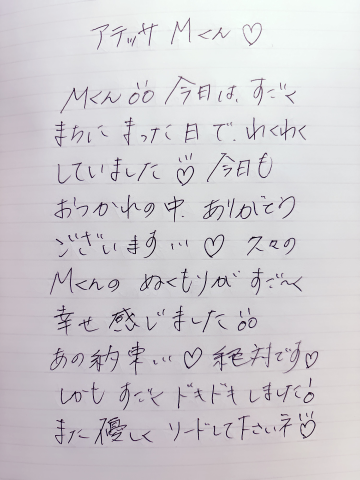 アテッサ Mくん♡
Mくん!! 今日は、すごく
まちにまった日で、わくわく
していました♡ 今日も
おつかれの中、ありがとう
ございます…♡ 久々の
Mくんの ぬくもりが すご〜く
幸せ感じました!!
あの約束…♡ 絶対です♡
しかも すごく ドキドキしました!
また優しく リードして下さいネ♡